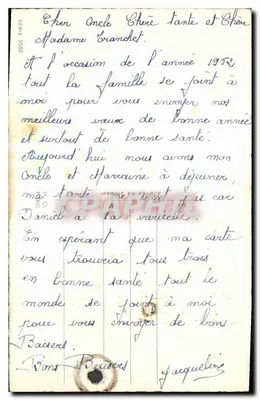 Cher Oncle Chère tante et Chère
Madame Tranchet.
A l'occasion de l'année 1952
tout la famille se joint à
moi pour vous envoyer nos
meilleurs vœux de bonne année
et surtout de bonne santé.
Aujourd'hui nous avons mon
Oncle et Marraine à déjeuner,
ma tante car
Daniel a la varicelle.
En espérant que ma carte
vous trouvera tous trois
en bonne santé tout le
monde se joint à moi
pour vous envoyer de bons
Baisers.
Bons Baisers
Jacqueline